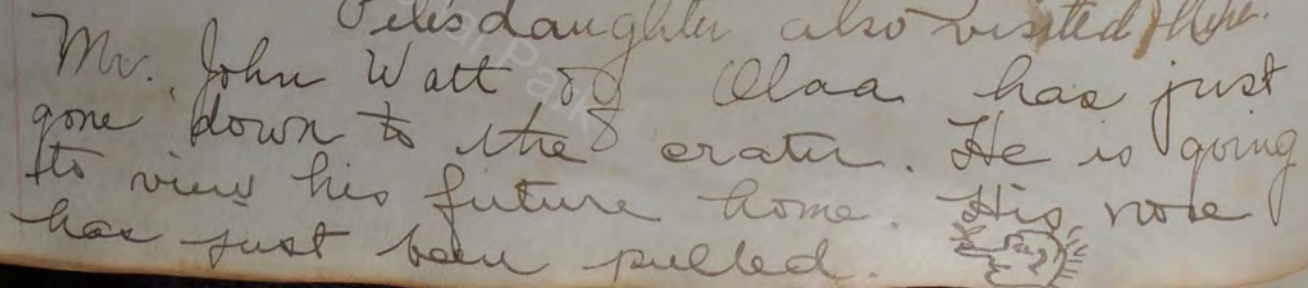 Pele's daughter also visited here.
Mr. John Watt of Olaa has just
gone down to the crater. He is going
to view his future home. His nose
has just been pulled.